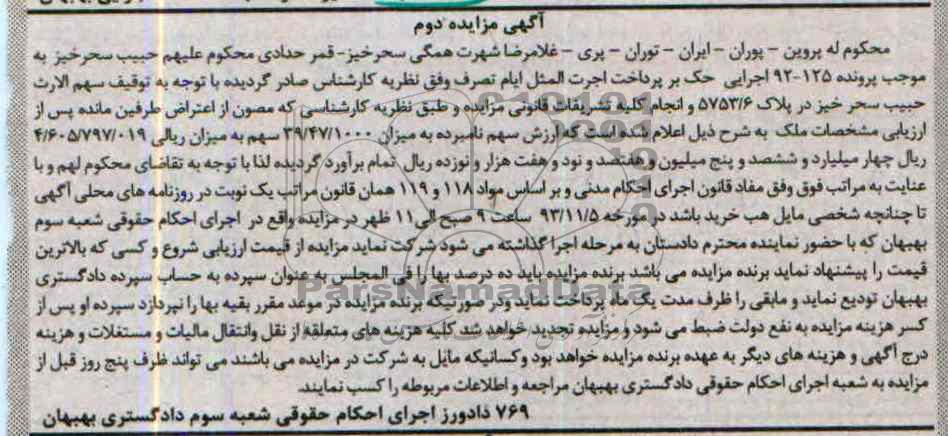 آگهی مزایده دوم
محکوم له پروین – پوران – ایران – توران – پری – غلامرضا شهرت همگی سحرخیز- قمر حدادی محکوم علیهم حبیب سحرخیز به
موجب پرونده ۱۲۵-۹۲ اجرایی حک بر پرداخت اجرت المثل ایام تصرف وفق نظریه کارشناس صادر گردیده با توجه به توقیف سهم الارث
حبیب سحر خیز در پلاک ۵۷۵۳/۶ و انجام کلیه تشریفات قانونی مزایده و طبق نظریه کارشناسی که مصون از اعتراض طرفین مانده پس از
ارزیابی مشخصات ملک به شرح ذیل اعلام شده است که ارزش سهم نامبرده به میزان ۳۹/۴۷/۱۰۰۰ سهم به میزان ریالی ۴/۶۰۵/۷۹۷/۰۱۹
ریال چهار میلیارد و ششصد و پنج میلیون و هفتصد و نود و هفت هزار و نوزده ریال تمام برآورد گردیده لذا با توجه به تقاضای محکوم لهم و با
عنایت به مراتب فوق وفق مفاد قانون اجرای احکام مدنی و بر اساس مواد ۱۱۸ و ۱۱۹ همان قانون مراتب یک نوبت در روزنامه های محلی آگهی
تا چنانچه شخصی مایل هب خرید باشد در مورخه ۹۳/۱۱/۵ ساعت ۹ صبح الی ۱۱ ظهر در مزایده واقع در اجرای احکام حقوقی شعبه سوم
بهبهان که با حضور نماینده محترم دادستان به مرحله اجرا گذاشته می شود شرکت نماید مزایده از قیمت ارزیابی شروع و کسی که بالاترین
قیمت را پیشنهاد نماید برنده مزایده می باشد برنده مزایده باید ده درصد بها را فی المجلس به عنوان سپرده به حساب سپرده دادگستری
بهبهان تودیع نماید و مابقی را ظرف مدت یک ماه پرداخت نماید ودر صورتیکه برنده مزایده در موعد مقرر بقیه بها را نپردازد سپرده او پس از
کسر هزینه مزایده به نفع دولت ضبط می شود و مزایده تجدید خواهد شد کلیه هزینه های متعلقه از نقل وانتقال مالیات و مستغلات و هزینه
درج آگهی و هزینه های دیگر به عهده برنده مزایده خواهد بود وکسانیکه مایل به شرکت در مزایده می باشند می تواند ظرف پنج روز قبل از
مزایده به شعبه اجرای احکام حقوقی دادگستری بهبهان مراجعه و اطلاعات مربوطه را کسب نمایند.
۷۶۹ دادورز اجرای احکام حقوقی شعبه سوم دادگستری بهبهان
ParsNamadData